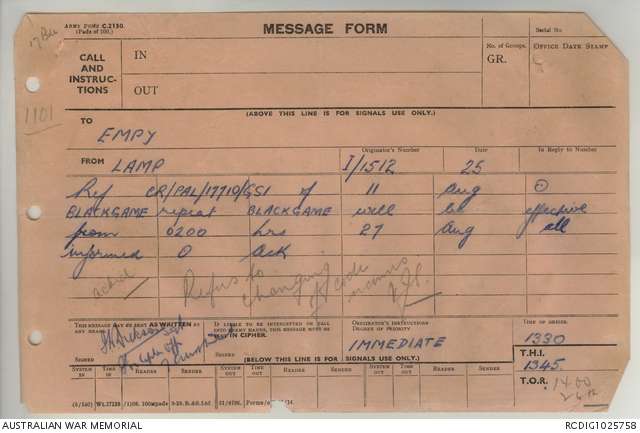 ARMY FORM C.2130.
(Pads of 100.)
MESSAGE FORM
Serial No.
17 Bde
1101
CALL
AND
INSTRUC-
TIONS
IN
OUT
No. of Groups.
GR.
OFFICE DATE STAMP
(ABOVE THIS LINE IS FOR SIGNALS USE ONLY.)
TO
EMPY
FROM LAMP
Originator's Number
I/1512
Date
25
In Reply to Number
Ref CR/PAL/17710/GSI of 11 Aug ⊙
BLACKGAME repeat BLACKGAME will be effective
from 0200 hrs 27 Aug all
informed ⊙ Ack
Refers to
changing
of code
names
THIS MESSAGE MAY BE SENT AS WRITTEN BY
IF LIABLE TO BE INTERCEPTED OR FALL
INTO ENEMY HANDS, THIS MESSAGE MUST BE
SENT IN CIPHER.
ORIGINATOR'S INSTRUCTIONS
DEGREE OF PRIORITY
TIME OF ORIGIN.
SIGNED
SIGNED
IMMEDIATE
1330
(BELOW THIS LINE IS FOR SIGNALS USE ONLY.)
T.H.I.
1345
SYSTEM IN
TIME IN
READER
SENDER
SYSTEM OUT
TIME OUT
READER
SENDER
SYSTEM OUT
TIME OUT
READER
SENDER
T.O.R.
1400
AUSTRALIAN WAR MEMORIAL
RCDIG1025758